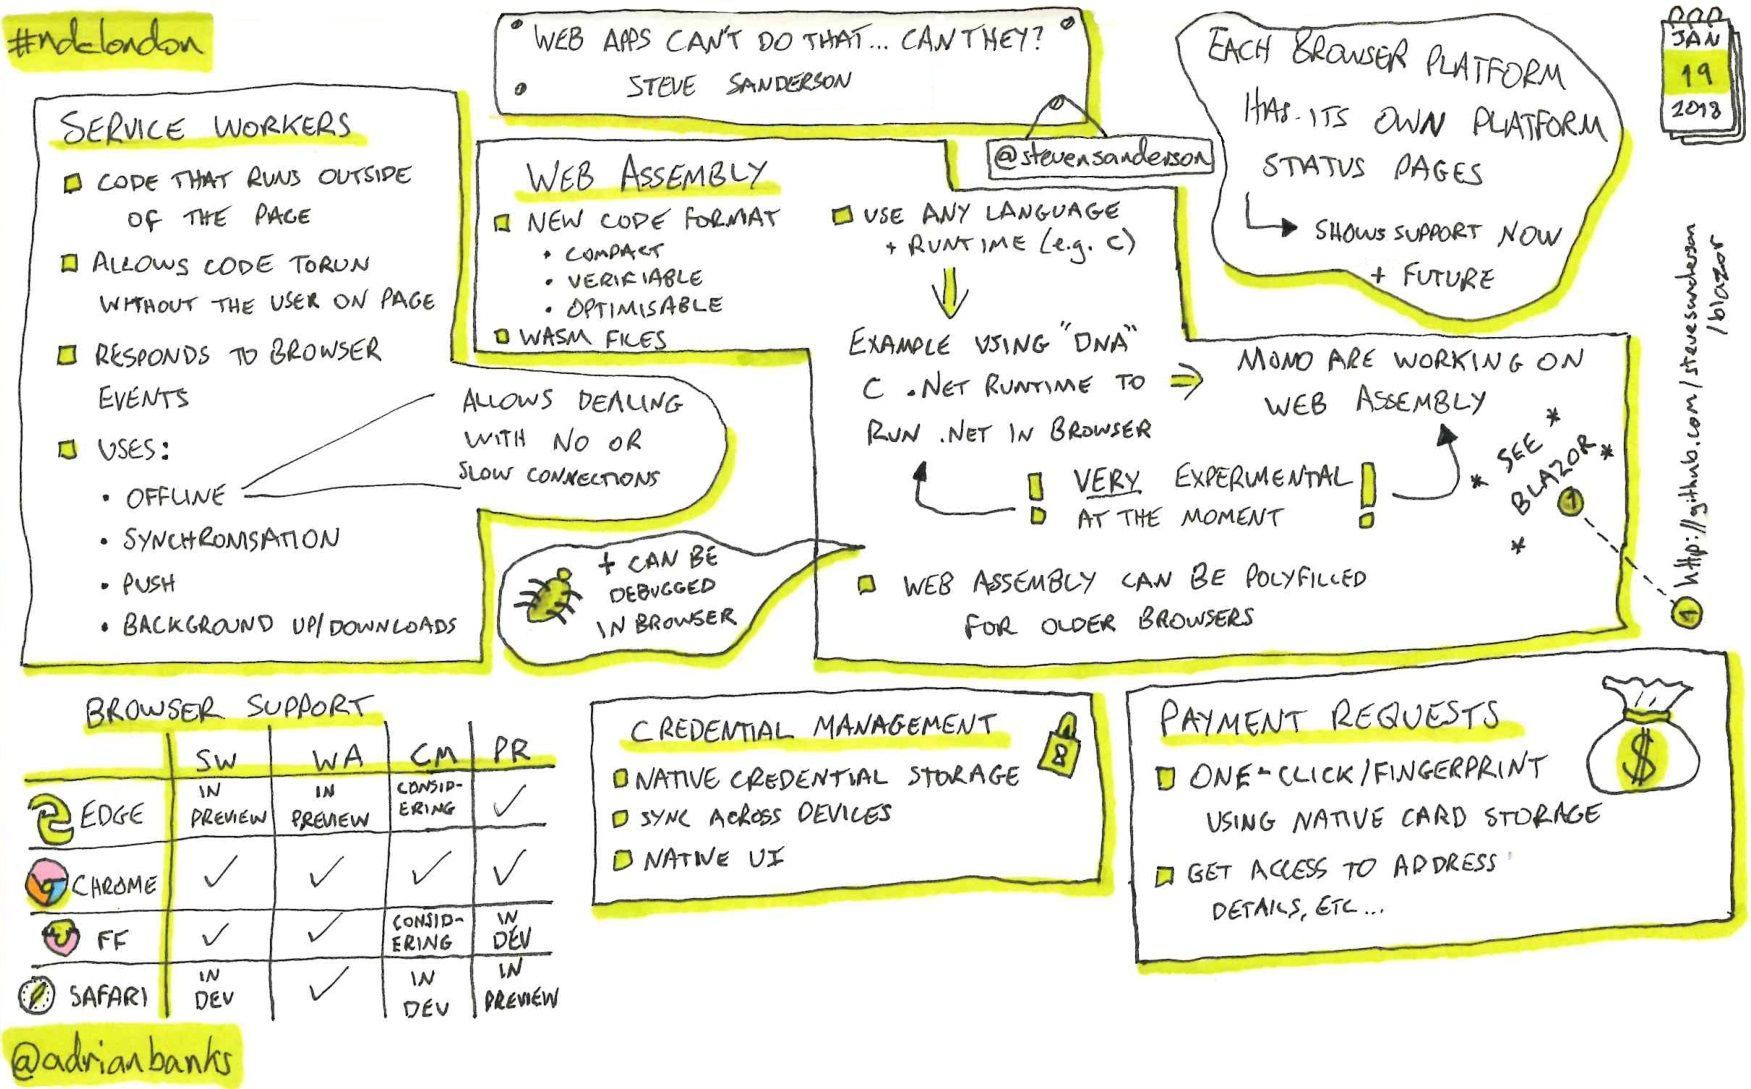 #ndclondon
WEB APPS CAN'T DO THAT... CAN THEY?
STEVE SANDERSON
@stevensanderson
EACH BROWSER PLATFORM
HAS ITS OWN PLATFORM
STATUS PAGES
SHOWS SUPPORT NOW
+ FUTURE
JAN
19
2018
SERVICE WORKERS
CODE THAT RUNS OUTSIDE
OF THE PAGE
ALLOWS CODE TO RUN
WITHOUT THE USER ON PAGE
RESPONDS TO BROWSER
EVENTS
USES:
• OFFLINE
• SYNCHRONISATION
• PUSH
• BACKGROUND UP/DOWNLOADS
ALLOWS DEALING
WITH NO OR
SLOW CONNECTIONS
WEB ASSEMBLY
NEW CODE FORMAT
• COMPACT
• VERIFIABLE
• OPTIMISABLE
WASM FILES
USE ANY LANGUAGE
+ RUNTIME (e.g. C)
EXAMPLE USING "DNA"
C .NET RUNTIME TO
RUN .NET IN BROWSER
MONO ARE WORKING ON
WEB ASSEMBLY
! VERY EXPERIMENTAL !
AT THE MOMENT
* SEE *
* BLAZOR *
1
WEB ASSEMBLY CAN BE POLYFILLED
FOR OLDER BROWSERS
+ CAN BE
DEBUGGED
IN BROWSER
1 http://github.com/stevesanderson
/blazor
BROWSER SUPPORT
SW WA CM PR
EDGE IN PREVIEW IN PREVIEW CONSID-ERING ✓
CHROME ✓ ✓ ✓ ✓
FF ✓ ✓ CONSID-ERING IN DEV
SAFARI IN DEV ✓ IN DEV IN PREVIEW
CREDENTIAL MANAGEMENT
8
NATIVE CREDENTIAL STORAGE
SYNC ACROSS DEVICES
NATIVE UI
PAYMENT REQUESTS
$
ONE-CLICK/FINGERPRINT
USING NATIVE CARD STORAGE
GET ACCESS TO ADDRESS
DETAILS, ETC...
@adrianbanks